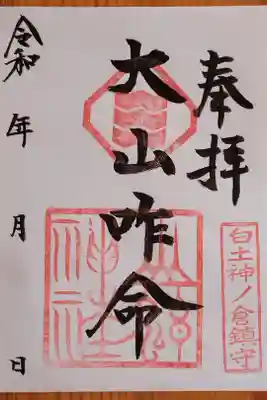 奉拝
大山咋命
白土神ノ倉鎮守
令和 年 月 日